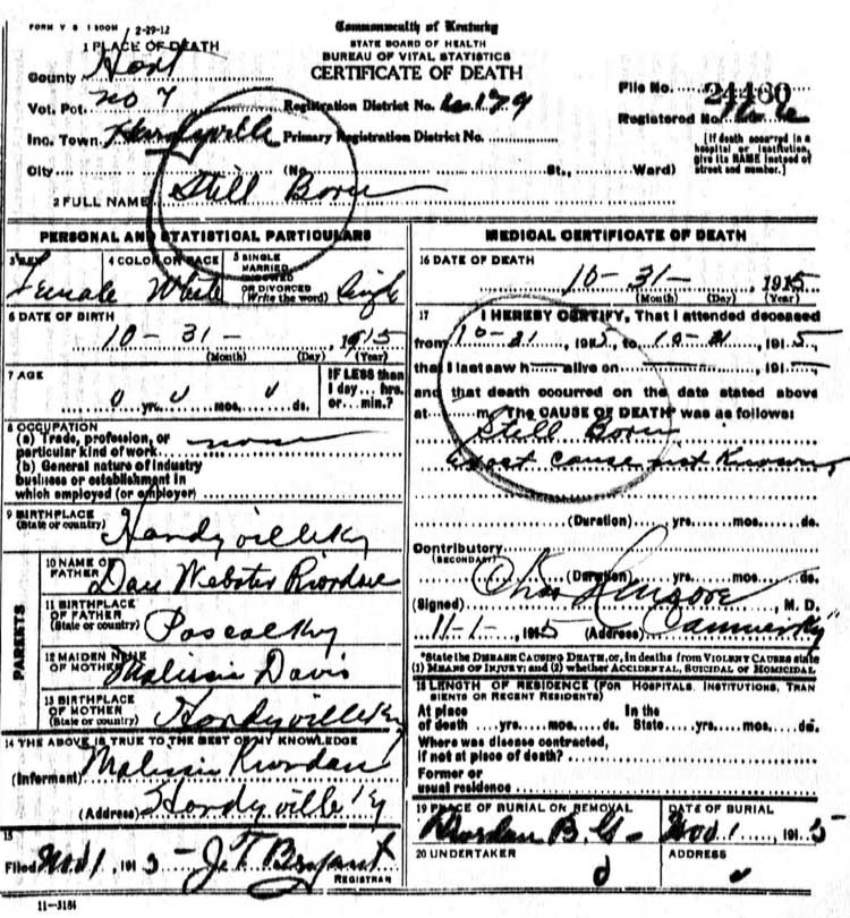 FORM V S 1 500M 2-29-12
Commonwealth of Kentucky
STATE BOARD OF HEALTH
BUREAU OF VITAL STATISTICS
CERTIFICATE OF DEATH
1 PLACE OF DEATH
County Hart
Vot. Pct. No 7
Inc. Town Hardyville
City
Registration District No. 6179
Primary Registration District No.
(No. St., Ward)
File No. 24460
Registered No.
[If death occurred in a
hospital or institution,
give its NAME instead of
street and number.]
2 FULL NAME Still Born
PERSONAL AND STATISTICAL PARTICULARS
3 SEX
Female
4 COLOR OR RACE
White
5 SINGLE
MARRIED
WIDOWED
OR DIVORCED
(Write the word) Single
6 DATE OF BIRTH
10-31-, 1915
(Month) (Day) (Year)
7 AGE
0 yrs. 0 mos. 0 ds.
IF LESS than
1 day... hrs.
or... min.?
8 OCCUPATION
(a) Trade, profession, or
particular kind of work none
(b) General nature of industry
business or establishment in
which employed (or employer)
9 BIRTHPLACE
(State or country) Hardyville Ky
PARENTS
10 NAME OF
FATHER Dan Webster Riordan
11 BIRTHPLACE
OF FATHER
(State or country) Pascal Ky
12 MAIDEN NAME
OF MOTHER Malissie Davis
13 BIRTHPLACE
OF MOTHER
(State or country) Hardyville Ky
14 THE ABOVE IS TRUE TO THE BEST OF MY KNOWLEDGE
(Informant) Malissie Riordan
(Address) Hardyville Ky
15
Filed Nov 1, 1915 J.T. Bryant
REGISTRAR
11-3184
MEDICAL CERTIFICATE OF DEATH
16 DATE OF DEATH
10-31-, 1915
(Month) (Day) (Year)
17 I HEREBY CERTIFY, That I attended deceased
from 10-31, 1915, to 10-31, 1915,
that I last saw h alive on , 191
and that death occurred on the date stated above
at m. The CAUSE OF DEATH* was as follows:
Still Born
exact cause not known
(Duration) yrs. mos. ds.
Contributory
(SECONDARY)
(Duration) yrs. mos. ds.
(Signed) Chas , M. D.
11-1-, 1915 (Address) Canmer Ky
*State the DISEASE CAUSING DEATH, or, in deaths from VIOLENT CAUSES state
(1) MEANS OF INJURY; and (2) whether ACCIDENTAL, SUICIDAL OR HOMICIDAL
18 LENGTH OF RESIDENCE (FOR HOSPITALS, INSTITUTIONS, TRAN
SIENTS OR RECENT RESIDENTS)
At place In the
of death yrs. mos. ds. State yrs. mos. ds.
Where was disease contracted,
if not at place of death?
Former or
usual residence
19 PLACE OF BURIAL OR REMOVAL
Riordan B. G.
DATE OF BURIAL
Nov 1, 1915
20 UNDERTAKER
ADDRESS